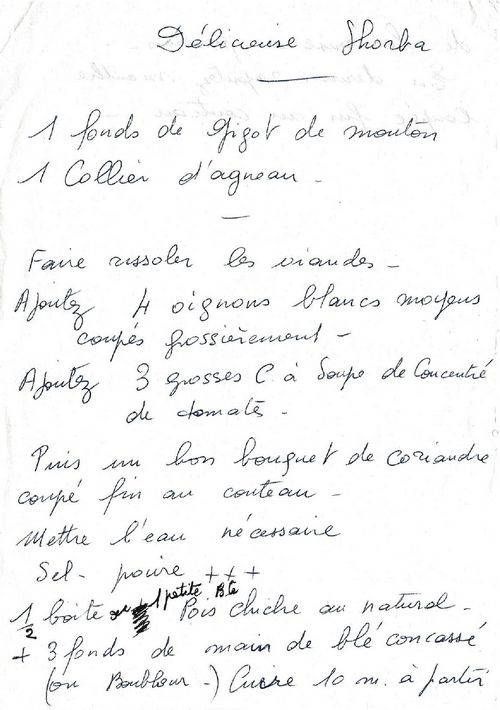 Délicieuse Shorba
1 fonds de gigot de mouton
1 Collier d'agneau -
Faire rissoler les viandes -
Ajoutez 4 oignons blancs moyens
coupés grossièrement -
Ajoutez 3 grosses C. à Soupe de Concentré
de tomates -
Puis un bon bouquet de coriandre
coupé fin au couteau -
Mettre l'eau nécessaire
Sel - poivre +++
1/2 boite ou 1 petite Bte Pois chiche au naturel -
+ 3 fonds de main de blé concassé
(ou Boulghour -) Cuire 10 m. à partir